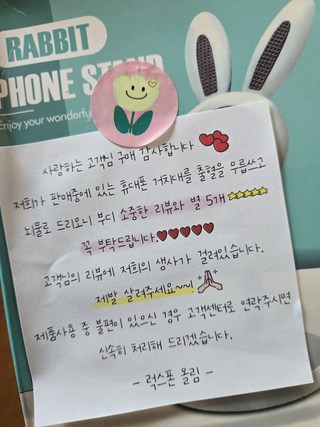 RABBIT
PHONE STAND
Enjoy your wonderful
사랑하는 고객님 구매 감사합니다
저희가 판매중에 있는 휴대폰 거치대를 출혈을 무릅쓰고
뇌물로 드리오니 부디 소중한 리뷰와 별 5개
꼭 부탁드립니다.
고객님의 리뷰에 저희의 생사가 걸려있습니다.
제발 살려주세요~~!
제품사용 중 불편이 있으신 경우 고객센터로 연락주시면
신속히 처리해 드리겠습니다.
- 럭스폰 올림 -